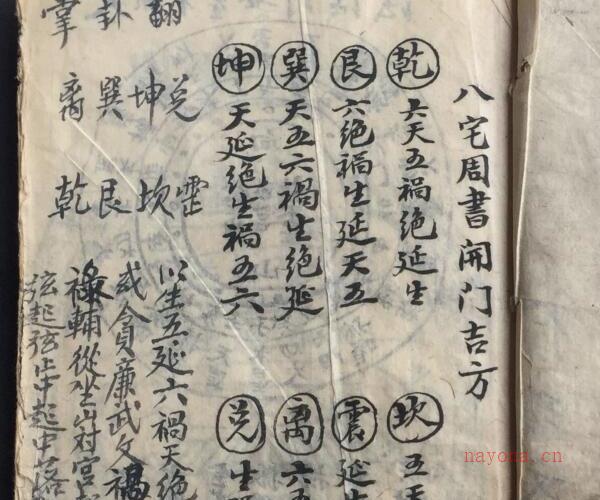 八宅周書開门吉方
乾 六天五禍絶延生
坎 五天
艮 六絶禍生延天五
震 延生
巽 天五六禍生絶延
离 六五
坤 天延絶生禍五六
兑 生禍
翻卦掌
兑坤巽离
震坎艮乾
以生五延六禍天絶
貪廉武文禄
輔從坐山对宫起
弦起弦止中起中落
nayona.cn